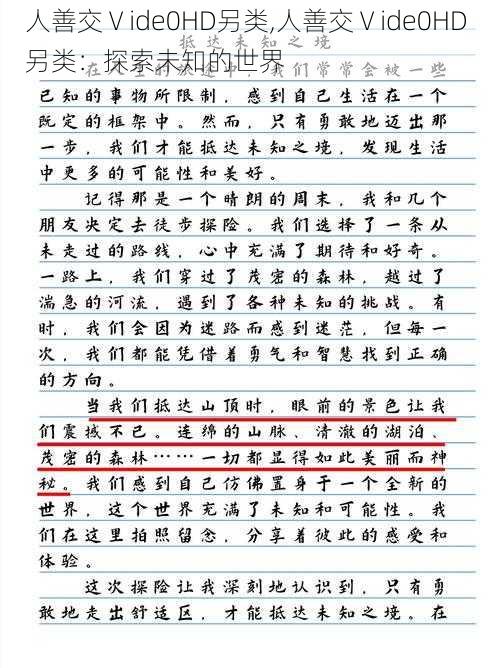 人善交Ⅴide0HD另类,人善交Ⅴide0HD
另类：探索未知的世界
抵达未知之境
我们常常会被一些
已知的事物所限制，感到自己生活在一个
既定的框架中。然而，只有勇敢地迈出那
一步，我们才能抵达未知之境，发现生活
中更多的可能性和美好。
记得那是一个晴朗的周末，我和几个
朋友决定去徒步探险。我们选择了一条从
未走过的路线，心中充满了期待和好奇。
一路上，我们穿过了茂密的森林，越过了
湍急的河流，遇到了各种未知的挑战。有
时，我们会因为迷路而感到迷茫，但每一
次，我们都能凭借着勇气和智慧找到正确
的方向。
当我们抵达山顶时，眼前的景色让我
们震撼不已。连绵的山脉、清澈的湖泊、
茂密的森林……一切都显得如此美丽而神
秘。我们感到自己仿佛置身于一个全新的
世界，这个世界充满了未知和可能性。我
们在这里拍照留念，分享着彼此的感受和
体验。
这次探险让我深刻地认识到，只有勇
敢地走出舒适区，才能抵达未知之境。在